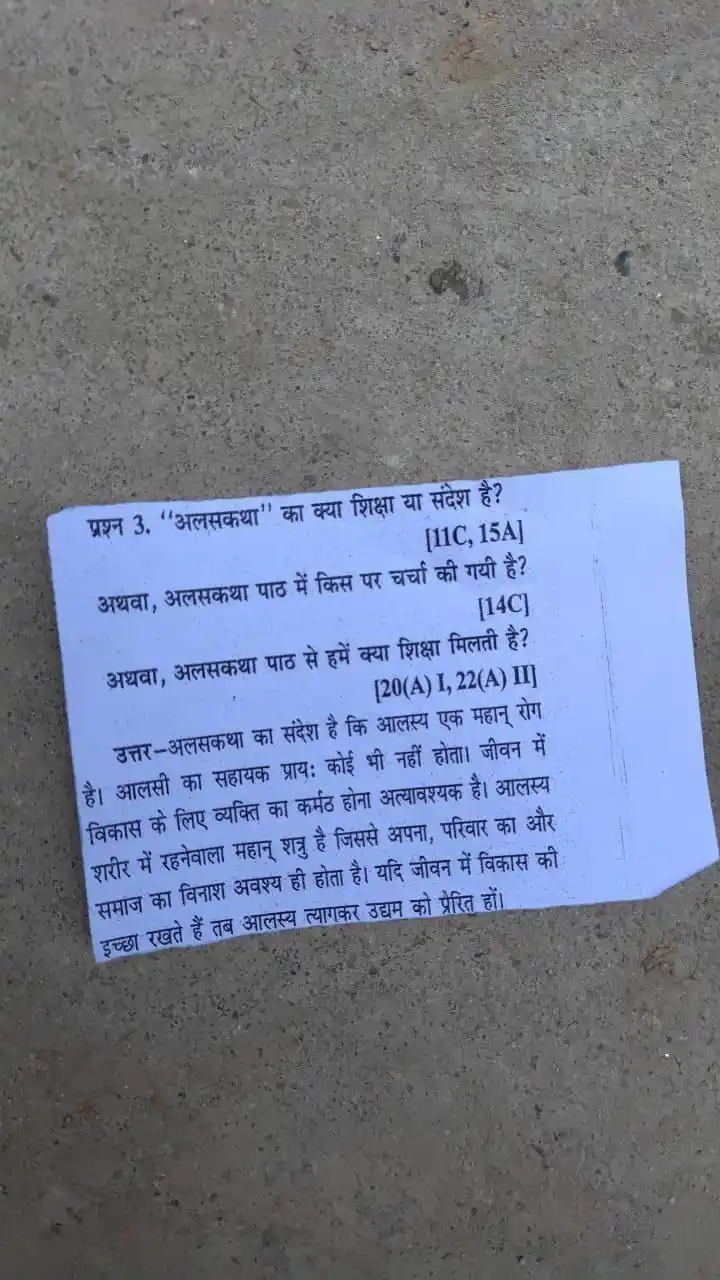 प्रश्न 3. ‘‘अलसकथा’’ का क्या शिक्षा या संदेश है?
[11C, 15A]
अथवा, अलसकथा पाठ में किस पर चर्चा की गयी है?
[14C]
अथवा, अलसकथा पाठ से हमें क्या शिक्षा मिलती है?
[20(A) I, 22(A) II]
उत्तर–अलसकथा का संदेश है कि आलस्य एक महान् रोग
है। आलसी का सहायक प्राय: कोई भी नहीं होता। जीवन में
विकास के लिए व्यक्ति का कर्मठ होना अत्यावश्यक है। आलस्य
शरीर में रहनेवाला महान् शत्रु है जिससे अपना, परिवार का और
समाज का विनाश अवश्य ही होता है। यदि जीवन में विकास की
इच्छा रखते हैं तब आलस्य त्यागकर उद्यम को प्रेरित हों।